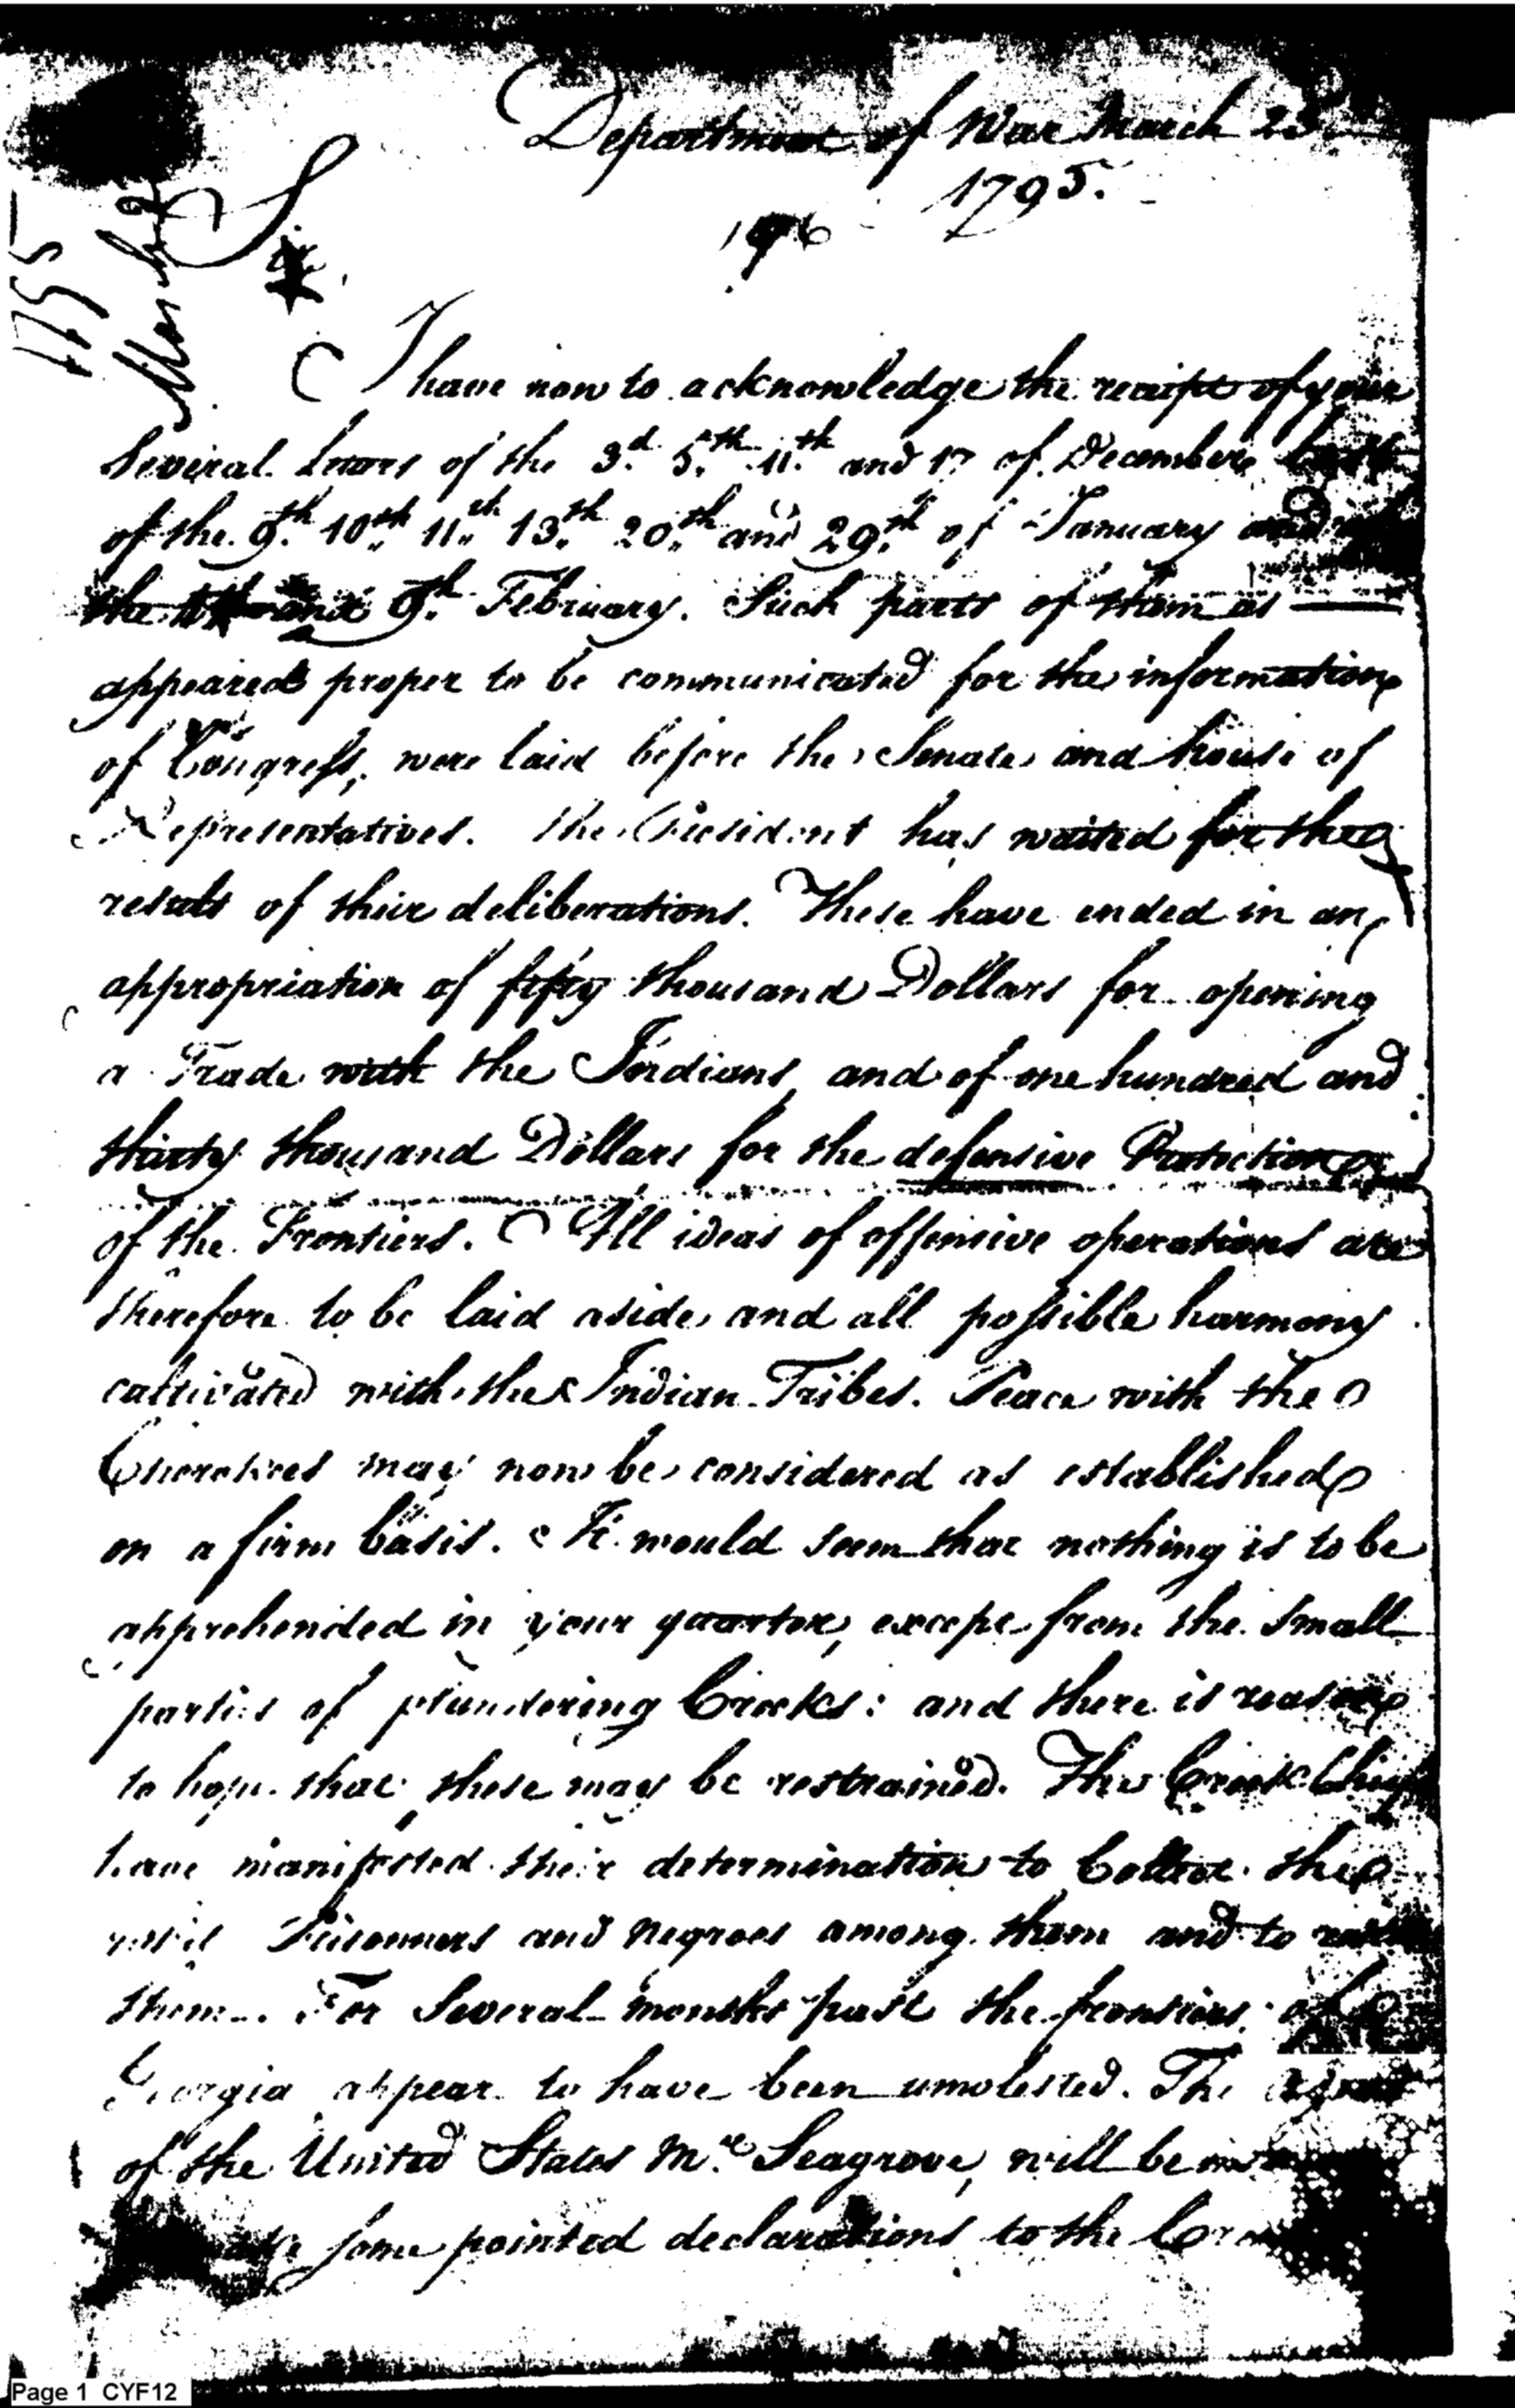 Department of War March 23
1795.
1795
March 23
Sir,
I have now to acknowledge the receipt of your
Several Letters of the 3.d 5.th 11.th and 17 of December last
of the 9.th 10.th 11.th 13.th 20.th and 29.th of January and
the and 9.th February. Such parts of them as
appeared proper to be communicated for the information
of Congress, were laid before the Senate and house of
Representatives. The President has waited for the
results of their deliberations. These have ended in an
appropriation of fifty thousand Dollars for opening
a Trade with the Indians, and of one hundred and
thirty thousand Dollars for the defensive Protection
of the Frontiers. All ideas of offensive operations are
therefore to be laid aside and all possible harmony
cultivated with the Indian Tribes. Peace with the
Cherokees may now be considered as established
on a firm basis. It would seem that nothing is to be
apprehended in your quarter, except from the small
parties of plundering Creeks: and there is reason
to hope that these may be restrained. The Creek Chiefs
have manifested their determination to Collect the
Prisonners and Negroes among them and to
them. For Several months past the frontiers of
Georgia appear to have been umolested. The agent
of the United States Mr. Seagrove, will be
some pointed declarations to the
Page 1 CYF12